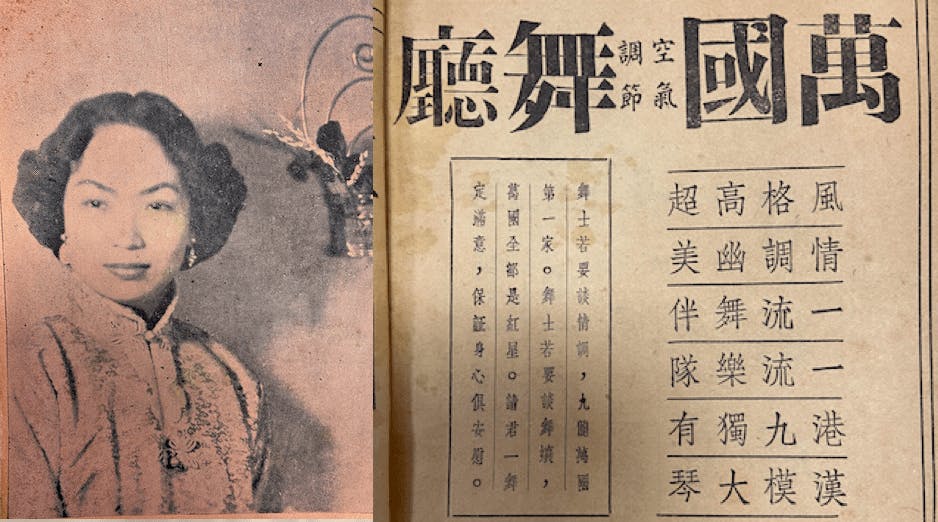 萬國空氣調節舞廳
風格高超
情調幽美
一流舞伴
一流樂隊
港九獨有
漢模大琴
舞士若要談情調，九龍萬國
第一家。舞士若要談舞孃，
萬國全都是紅星。請君一舞
定滿意，保証身心俱安慰。